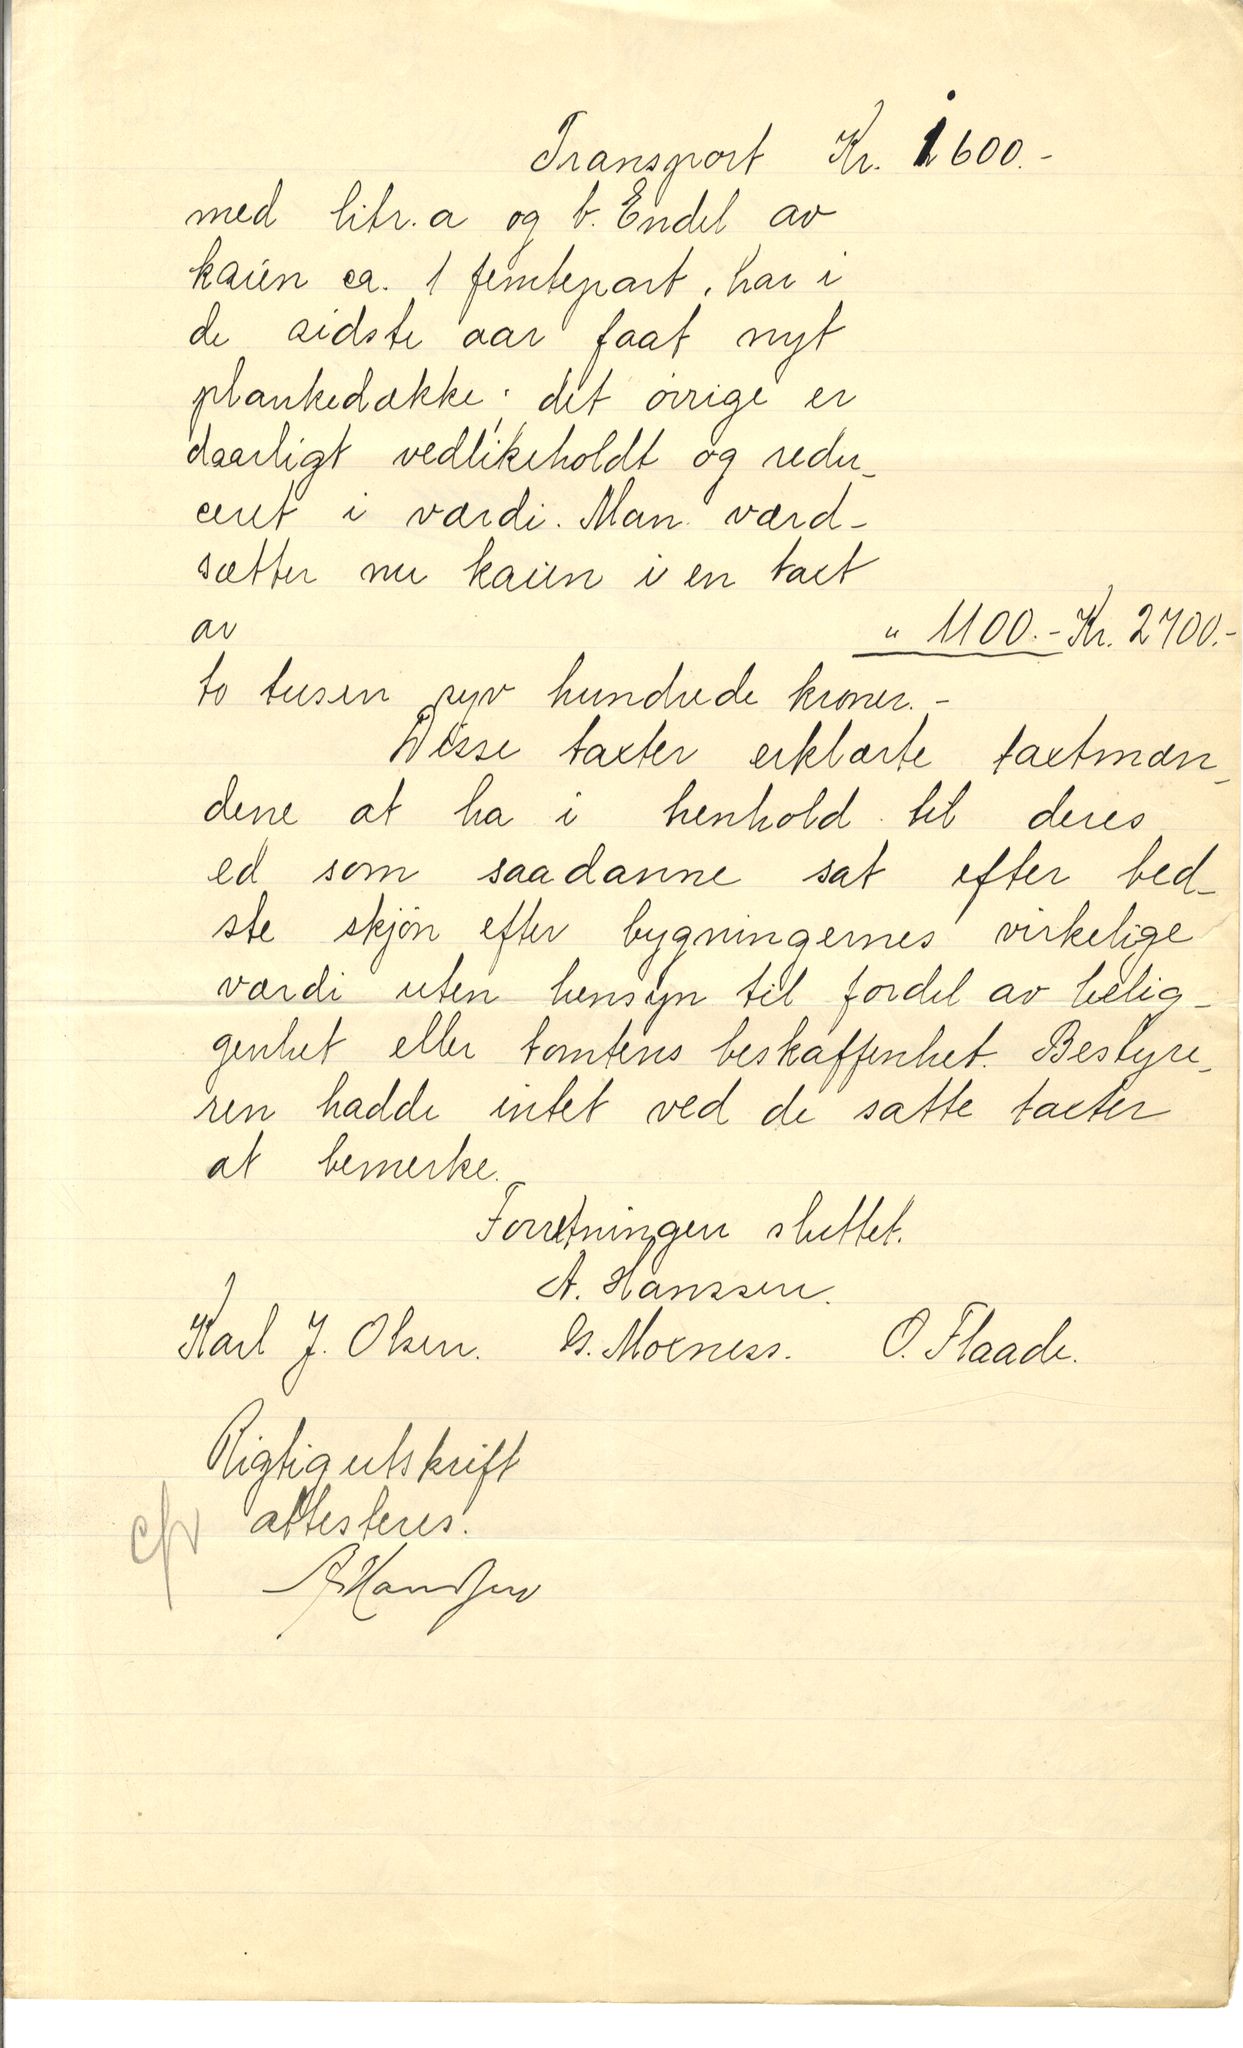 Transport Kr. 1600.-
med litr. a og b. Endel av
kaien ca. 1 femtepart, har i
de sidste aar faat nyt
plankedække; det øvrige er
daarligt vedlikeholdt og redu-
ceret i værdi. Man værd-
sætter nu kaien i en taxt
av " 1100.- Kr. 2700.-
to tusen syv hundrede kroner.-
Disse taxter erklærte taxtmæn-
dene at ha i henhold til deres
ed som saadanne sat efter bed-
ste skjøn efter bygningernes virkelige
værdi uten hensyn til fordel av belig-
genhet eller tomtens beskaffenhet. Bestyre-
ren hadde intet ved de satte taxter
at bemerke.
Forretningen sluttet.
A. Hanssen.
Karl J. Olsen. G. Moxness. O. Flaade.
Rigtig utskrift
attesteres.
AHanssen